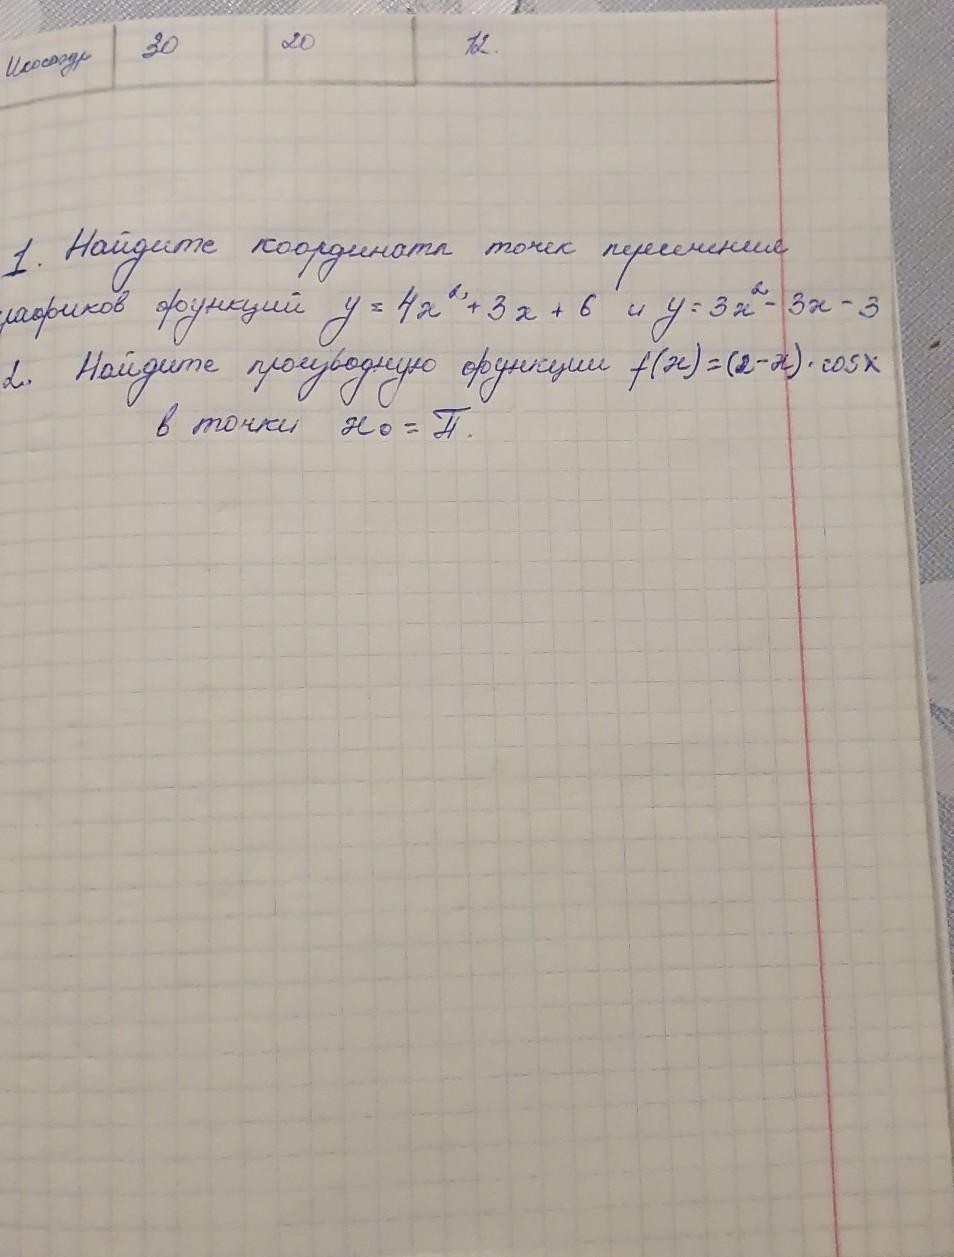 Икосаэдр 30 20 12.
1. Найдите координаты точек пересечения
графиков функций y = 4x² + 3x + 6 и y = 3x² - 3x - 3
2. Найдите производную функции f(x) = (2-x)·cosx
в точки x₀ = π.